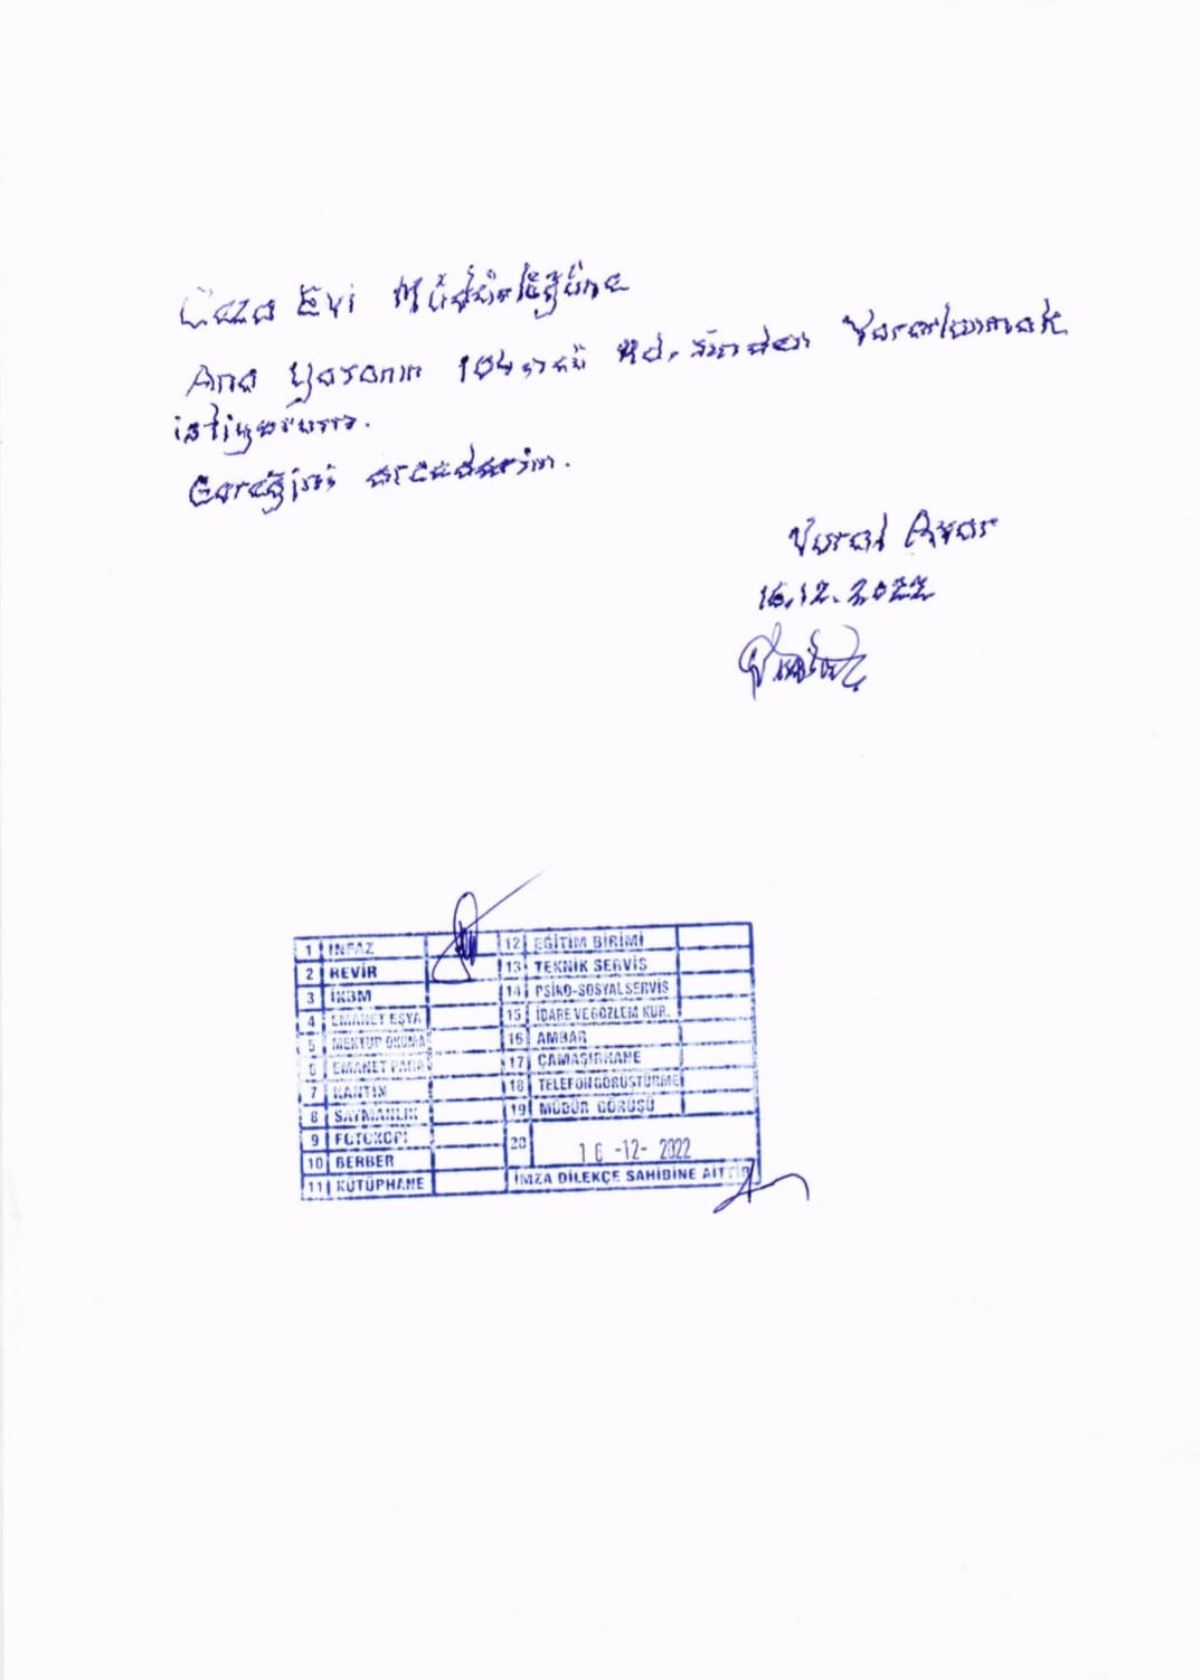 Ceza Evi Müdürlüğüne
Ana Yasanın 104.ncü Md.sinden Yararlanmak
istiyorum.
Gereğini arzederim.
Vural Avar
16.12.2022
1 İNFAZ
2 REVİR
3 İKBM
4 EMANET EŞYA
5 MEKTUP OKUMA
6 EMANET PARA
7 KANTİN
8 SAYMANLIK
9 FOTOKOPİ
10 BERBER
11 KÜTÜPHANE
12 EĞİTİM BİRİMİ
13 TEKNİK SERVİS
14 PSİKO-SOSYAL SERVİS
15 İDARE VE GÖZLEM KUR.
16 AMBAR
17 ÇAMAŞIRHANE
18 TELEFON GÖRÜŞTÜRME
19 MÜDÜR GÖRÜŞÜ
20 16 -12- 2022
İMZA DİLEKÇE SAHİBİNE AİTTİR